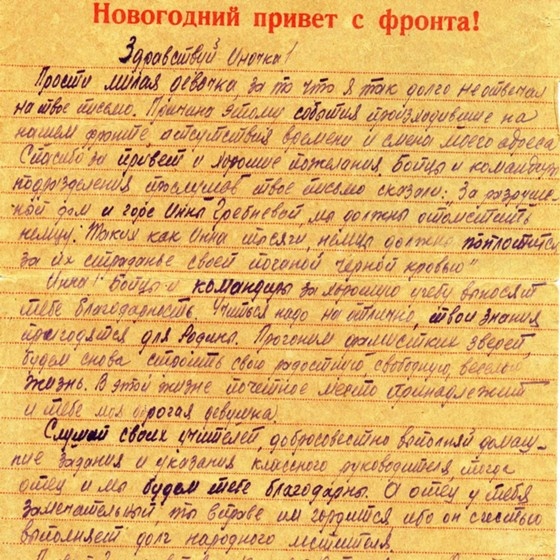 Новогодний привет с фронта!
Здравствуй Инночка!
Прости милая девочка за то что я так долго не отвечал
на твое письмо. Причина этому события происходившие на
нашем фронте, отсутствия времени и смена моего адреса
Спасибо за привет и хорошие пожелания. Бойцы и командиры
подразделения прослушав твое письмо сказали: За разрушен-
ной дом и горе Инны Гребневой мы должны отомстить
немцу. Таких как Инна тысячи, немцы должны поплатится
за их страданье своей поганой черной кровью"
Инна! Бойцы и командиры за хорошую учебу выносят
тебе благодарность. Учиться надо на отлично, твои знания
пригодятся для Родины. Прогоним фашистких зверей,
будем снова строить свою радостную, свободную, веселую
жизнь. В этой жизне почетное место принадлежит
и тебе моя дорогая девушка.
Слушай своих учителей, добросовестно выполняй домаш-
ние задания и указания классного руководителя тогда
отец и мы будем тебе благодарны. А отец у тебя
замечательный, ты вправе им гордится ибо он с честью
выполняет долг народного мстителя.